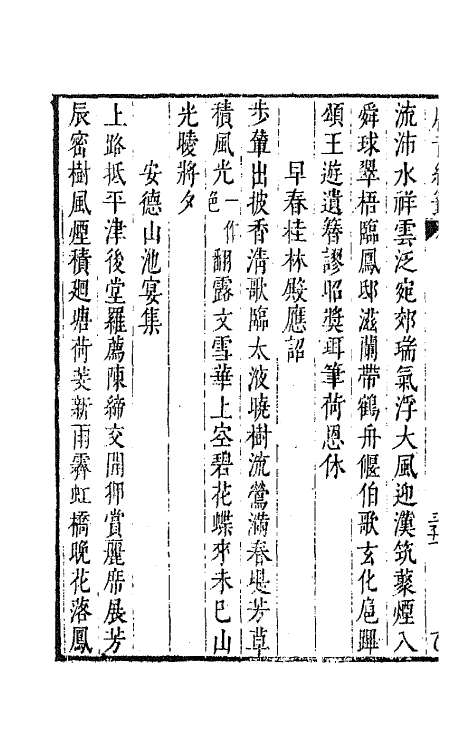 流沛水祥雲泛宛郊瑞氣浮大風迎漢筑藂煙入
舜球翠梧臨鳳邸滋蘭帶鶴舟偃伯歌玄化扈蹕
頌王遊遺簪謬昭獎珥筆荷恩休
早春桂林殿應詔
步輦出披香清歌臨太液曉樹流鶯滿春堤芳草
積風光一作色翻露文雪華上空碧花蝶來未已山
光曖將夕
安德山池宴集
上路抵平津後堂羅薦陳締交開狎賞麗席展芳
辰密樹風煙積廻塘荷芰新雨霽虹橋晚花落鳳